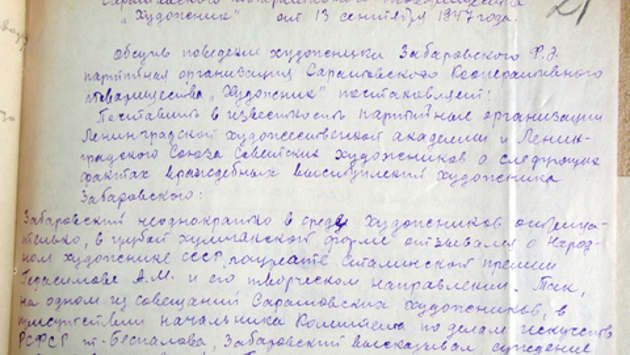 Саратовского кооперативного товарищества
"Художник" от 13 сентября 1947 года. 21
Обсудив поведение художника Забаровского Ф.Э.
партийная организация Саратовского Кооперативного
товарищества "Художник" постановляет:
Поставить в известность партийные организации
Ленинградской художественной академии и Ленин-
градского Союза Советских художников о следующих
фактах враждебных выступлений художника
Забаровского:
Забаровский неоднократно в среде художников отрица-
тельно, в грубой хулиганской форме отзывался о Народ-
ном художнике СССР, лауреате Сталинской премии
Герасимове А.М. и его творческом направлении. Так,
на одном из совещаний Саратовских художников, в
присутствии начальника Комитета по делам искусств
РСФСР т. Беспалова, Забаровский высказывал суждение